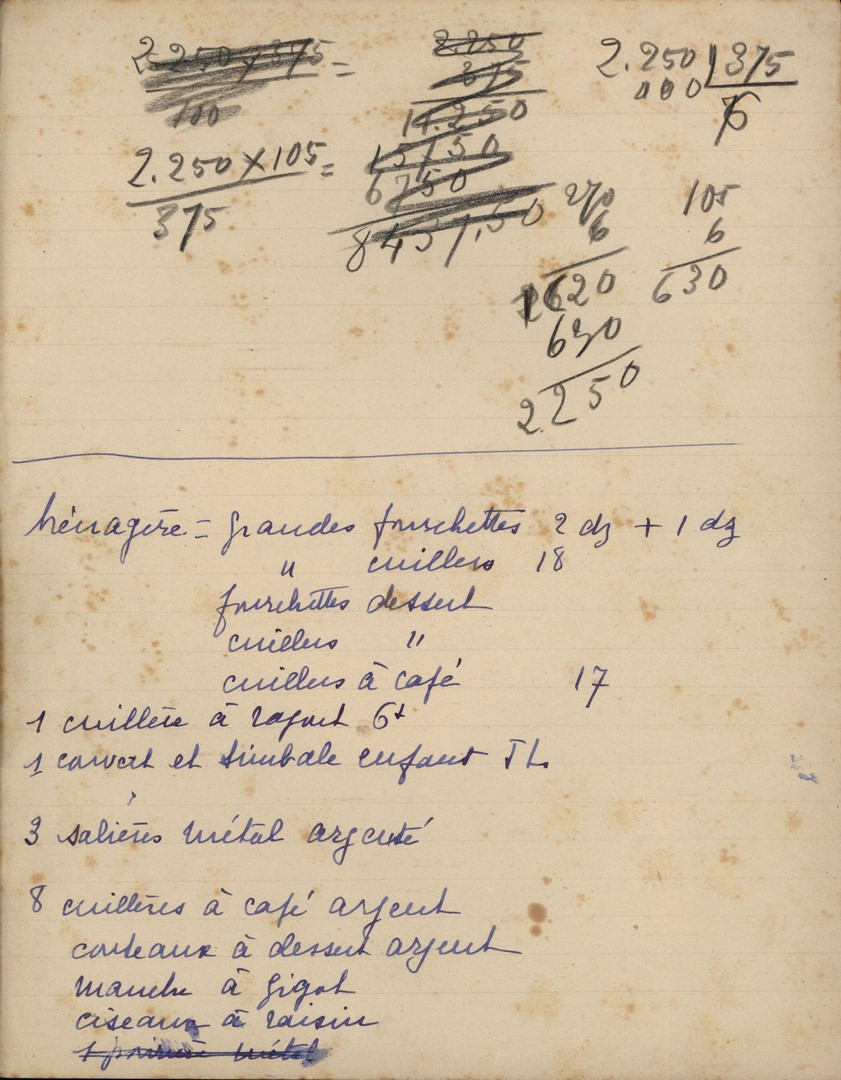 2.250 x 375 =
100
2.250
375
11.250
15750
6750
8437,50
2.250 x 105 =
375
2.250 | 375
000 6
270
6
1620
630
2250
105
6
630
Ménagère = grandes fourchettes 2 dz + 1 dz
" cuillers 18
fourchettes dessert
cuillers "
cuillers à café 17
1 cuillère à ragout
1 couvert et timbale enfant
3 salières métal argenté
8 cuillères à café argent
couteaux à dessert argent
manche à gigot
ciseaux à raisin
1 métal